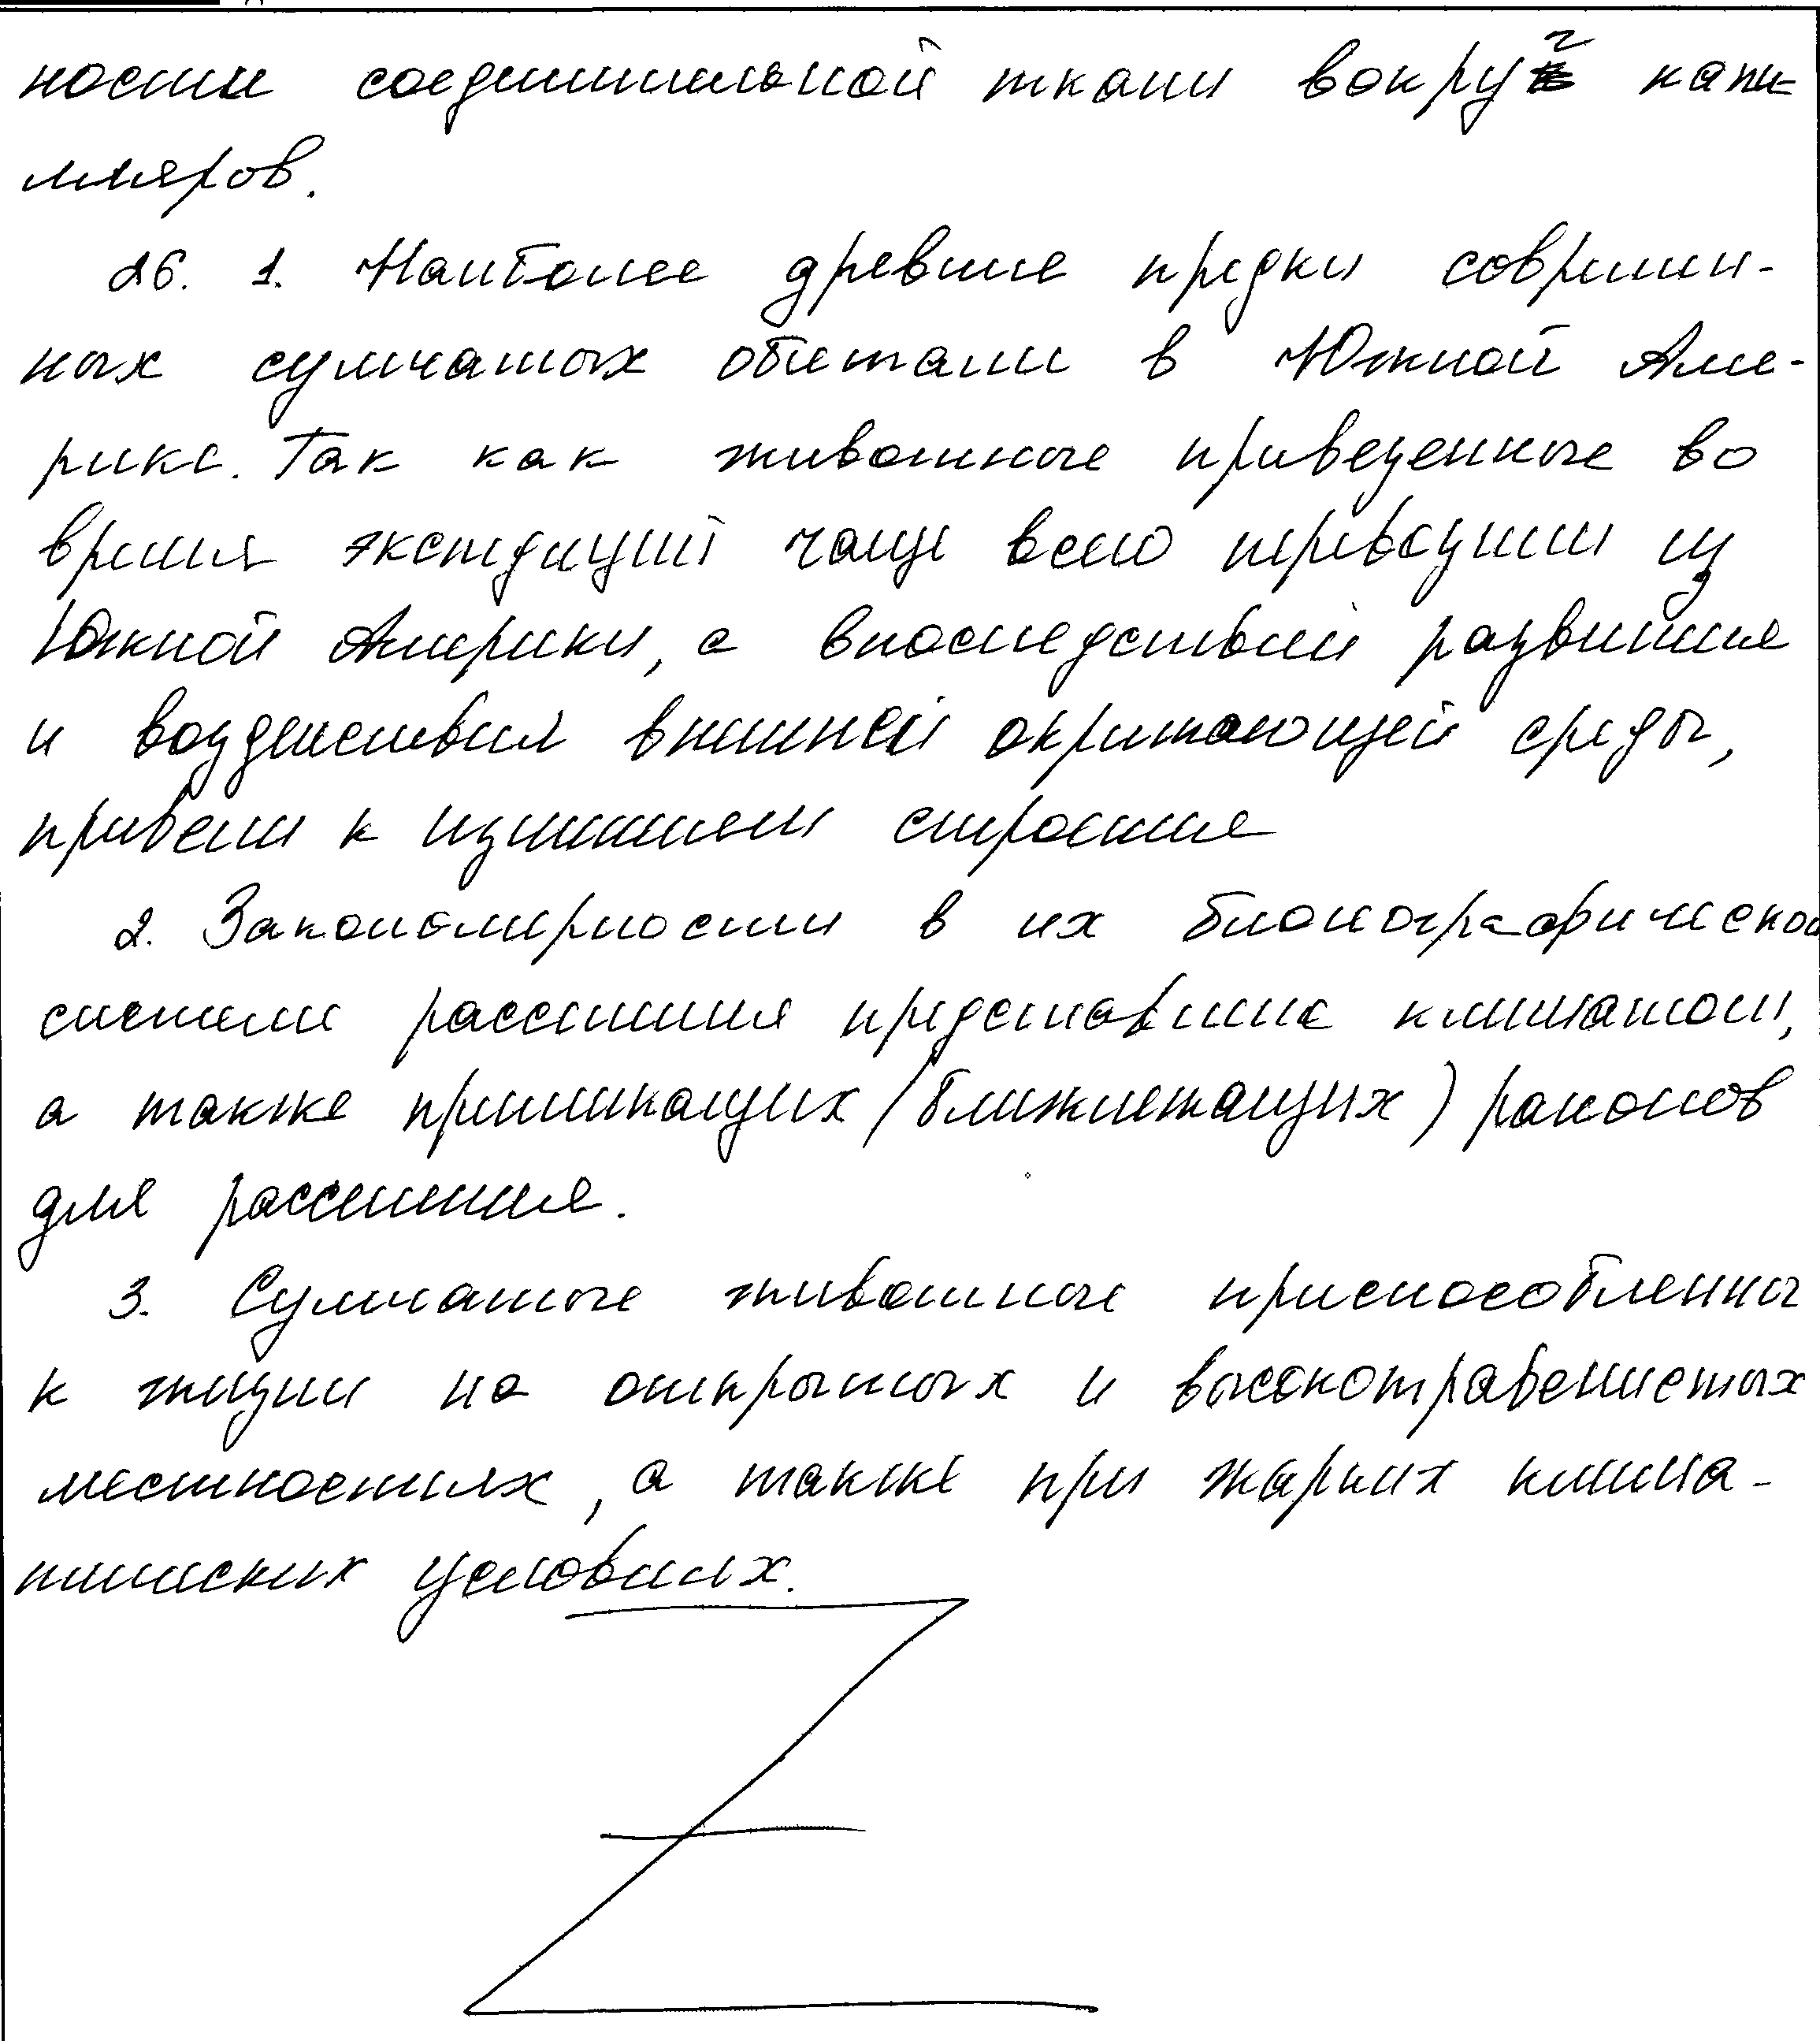 ности соединительной ткани вокруг капи-
лляров.
26. 1. Наиболее древние предки современ-
ных сумчатых обитали в Южной Аме-
рике. Так как животные привезенные во
время экспедиций чаще всего перевозили из
Южной Америки, а впоследствии развития
и воздействия внешней окружающей среды,
привели к изменениям строения
2. Закономерности в их биогеографической
системе расселения представлена климатом,
а также примыкающих (ближлежащих) районов
для расселения.
3. Сумчатые животные приспособленны
к жизни на открытых и высокотравенистых
местностях, а также при жарких клима-
тических условиях.